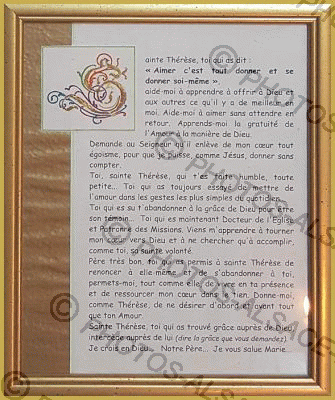 Sainte Thérèse, toi qui as dit :
« Aimer c'est tout donner et se
donner soi-même »,
aide-moi à apprendre à offrir à Dieu et
aux autres ce qu'il y a de meilleur en
moi. Aide-moi à aimer sans attendre en
retour. Apprends-moi la gratuité de
l'Amour à la manière de Dieu.
Demande au Seigneur qu'il enlève de mon cœur tout
égoïsme, pour que je puisse, comme Jésus, donner sans
compter.
Toi, sainte Thérèse, qui t'es faite humble, toute
petite... Toi qui as toujours essayé de mettre de
l'amour dans les gestes les plus simples du quotidien...
Toi qui es su t'abandonner à la grâce de Dieu pour être
son témoin... Toi qui es maintenant Docteur de l'Eglise
et Patronne des Missions. Viens m'apprendre à tourner
mon cœur vers Dieu et à ne chercher qu'à accomplir,
comme toi, sa sainte volonté.
Père très bon, toi qui as permis à sainte Thérèse de
renoncer à elle-même et de s'abandonner à toi,
permets-moi, tout comme elle, de vivre en ta présence
et de ressourcer mon cœur dans le tien. Donne-moi,
comme Thérèse, de ne désirer d'abord et avant tout
que ton Amour.
Sainte Thérèse, toi qui as trouvé grâce auprès de Dieu,
intercède auprès de lui (dire la grâce que vous demandez).
Je crois en Dieu... Notre Père... Je vous salue Marie...
© PHOTOS-ALSACE